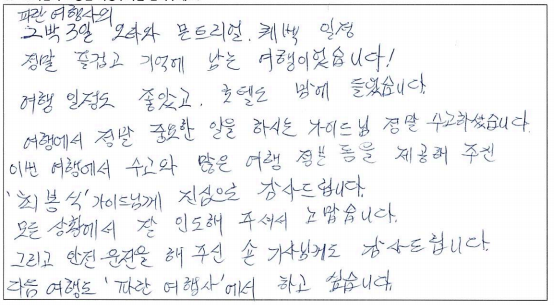 파란 여행사의
2박 3일 오타와 몬트리얼, 퀘벡 일정
정말 즐겁고 기억에 남는 여행이었습니다!
여행 일정도 좋았고, 호텔도 맘에 들었습니다.
여행에서 정말 중요한 일을 하시는 가이드님 정말 수고하셨습니다.
이번 여행에서 수고와 많은 여행 정보 등을 제공해 주신
'최봉식' 가이드님께 진심으로 감사드립니다.
모든 상황에서 잘 인도해 주셔서 고맙습니다.
그리고 안전운전을 해 주신 손 기사님께도 감사드립니다.
다음 여행도 '파란 여행사'에서 하고 싶습니다.